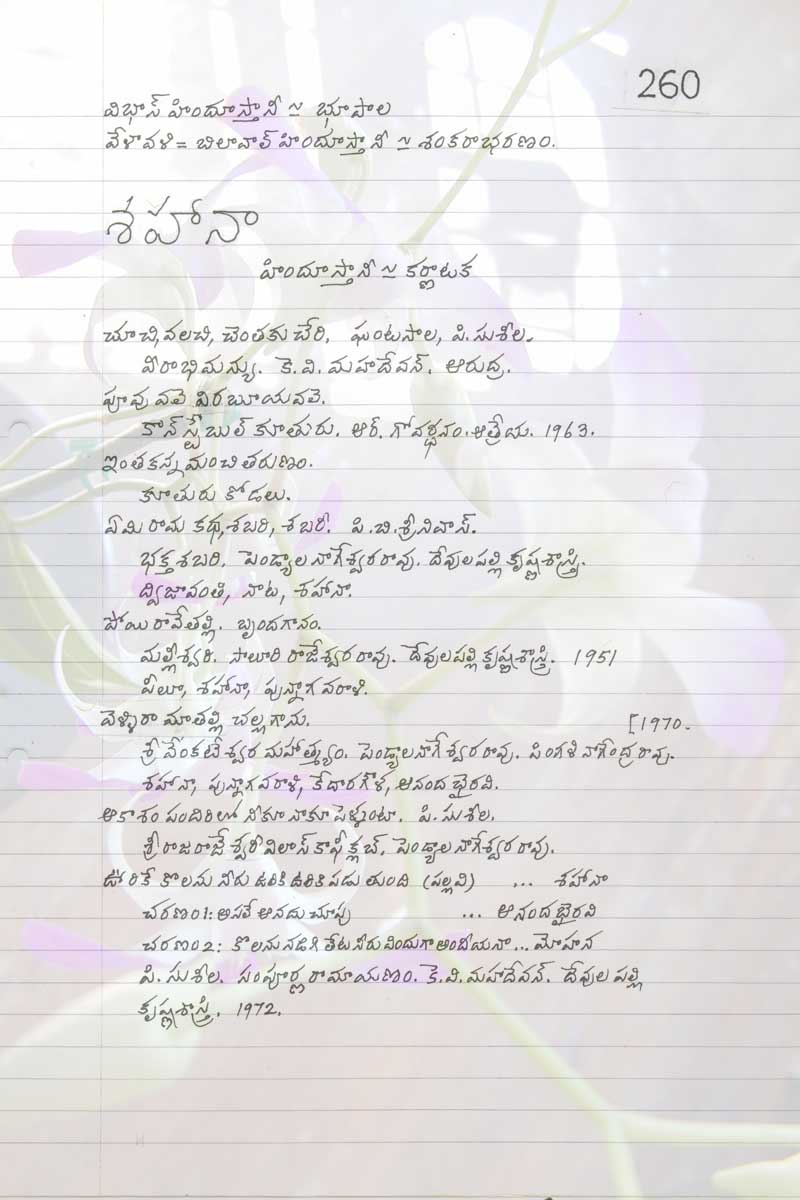 260
విభాస్ హిందూస్తానీ ≃ భూపాల
వేళావళి = బిలావాల్ హిందూస్తానీ ≃ శంకరాభరణం.
శహానా
హిందూస్తానీ ≃ కర్ణాటక
చూచి, వలచి, చెంతకు చేరి, ఘంటసాల, పి. సుశీల.
వీరాభిమన్యు. కె. వి. మహాదేవన్. ఆరుద్ర.
పూవు వలె విరబూయవలె.
కాన్స్టేబుల్ కూతురు. ఆర్. గోవర్ధనం. ఆత్రేయ. 1963.
ఇంతకన్న మంచి తరుణం.
కూతురు కోడలు.
ఏమి రామ కథ, శబరి, శబరీ. పి. బి. శ్రీనివాస్.
భక్త శబరి. పెండ్యాల నాగేశ్వరరావు. దేవులపల్లి కృష్ణశాస్త్రి.
ద్విజావంతి, నాట, శహానా.
పోయి రావే తల్లి. బృందగానం.
మల్లీశ్వరి. సాలూరి రాజేశ్వరరావు. దేవులపల్లి కృష్ణశాస్త్రి. 1951
పీలూ, శహానా, పున్నాగ వరాళి.
వెళ్ళిరా మాతల్లి చల్లగాను. [1970.
శ్రీ వేంకటేశ్వర మహాత్మ్యం. పెండ్యాల నాగేశ్వరరావు. పింగళి నాగేంద్రరావు.
శహానా, పున్నాగవరాళి, కేదారగౌళ, ఆనంద భైరవి.
ఆకాశం పందిరిలో నీకూ నాకూ పెళ్ళంటా. పి. సుశీల.
శ్రీ రాజరాజేశ్వరీ విలాస్ కాఫీ క్లబ్. పెండ్యాల నాగేశ్వరరావు.
ఊరికే కొలను నీరు ఉలికి ఉలికి పడుతుంది (పల్లవి) ... శహానా
చరణం 1: అసలే ఆనదు చూపు ... ఆనంద భైరవి
చరణం 2: కొలను నడిగి తేట నీరు విందుగా అందీయనా ... మోహన
పి. సుశీల. సంపూర్ణ రామాయణం. కె. వి. మహాదేవన్. దేవులపల్లి
కృష్ణశాస్త్రి. 1972.